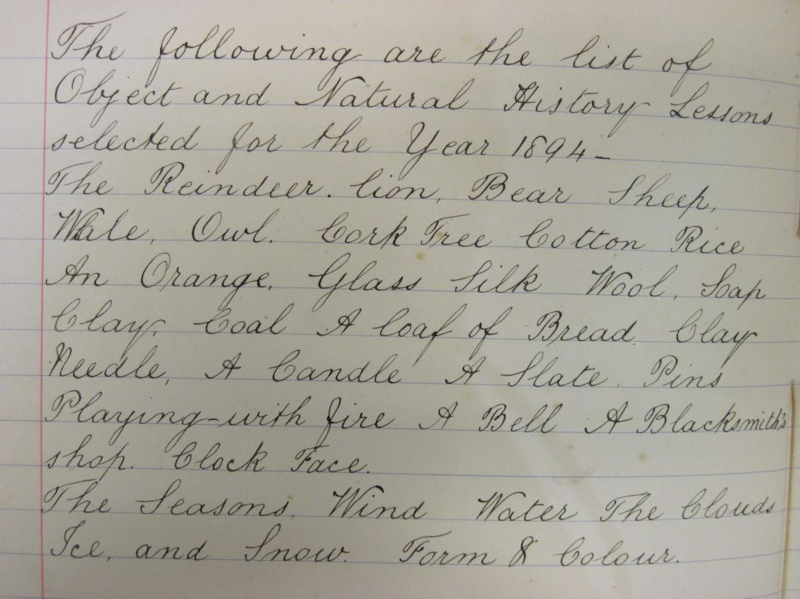 The following are the list of
Object and Natural History Lessons
selected for the Year 1894 –
The Reindeer. lion, Bear Sheep,
Whale, Owl. Cork Tree Cotton Rice
An Orange, Glass Silk Wool, Soap
Clay, Coal A loaf of Bread. Clay
Needle, A Candle A Slate. Pins
Playing-with fire A Bell A Blacksmith's
shop. Clock Face.
The Seasons, Wind Water The Clouds
Ice, and Snow. Form & Colour.